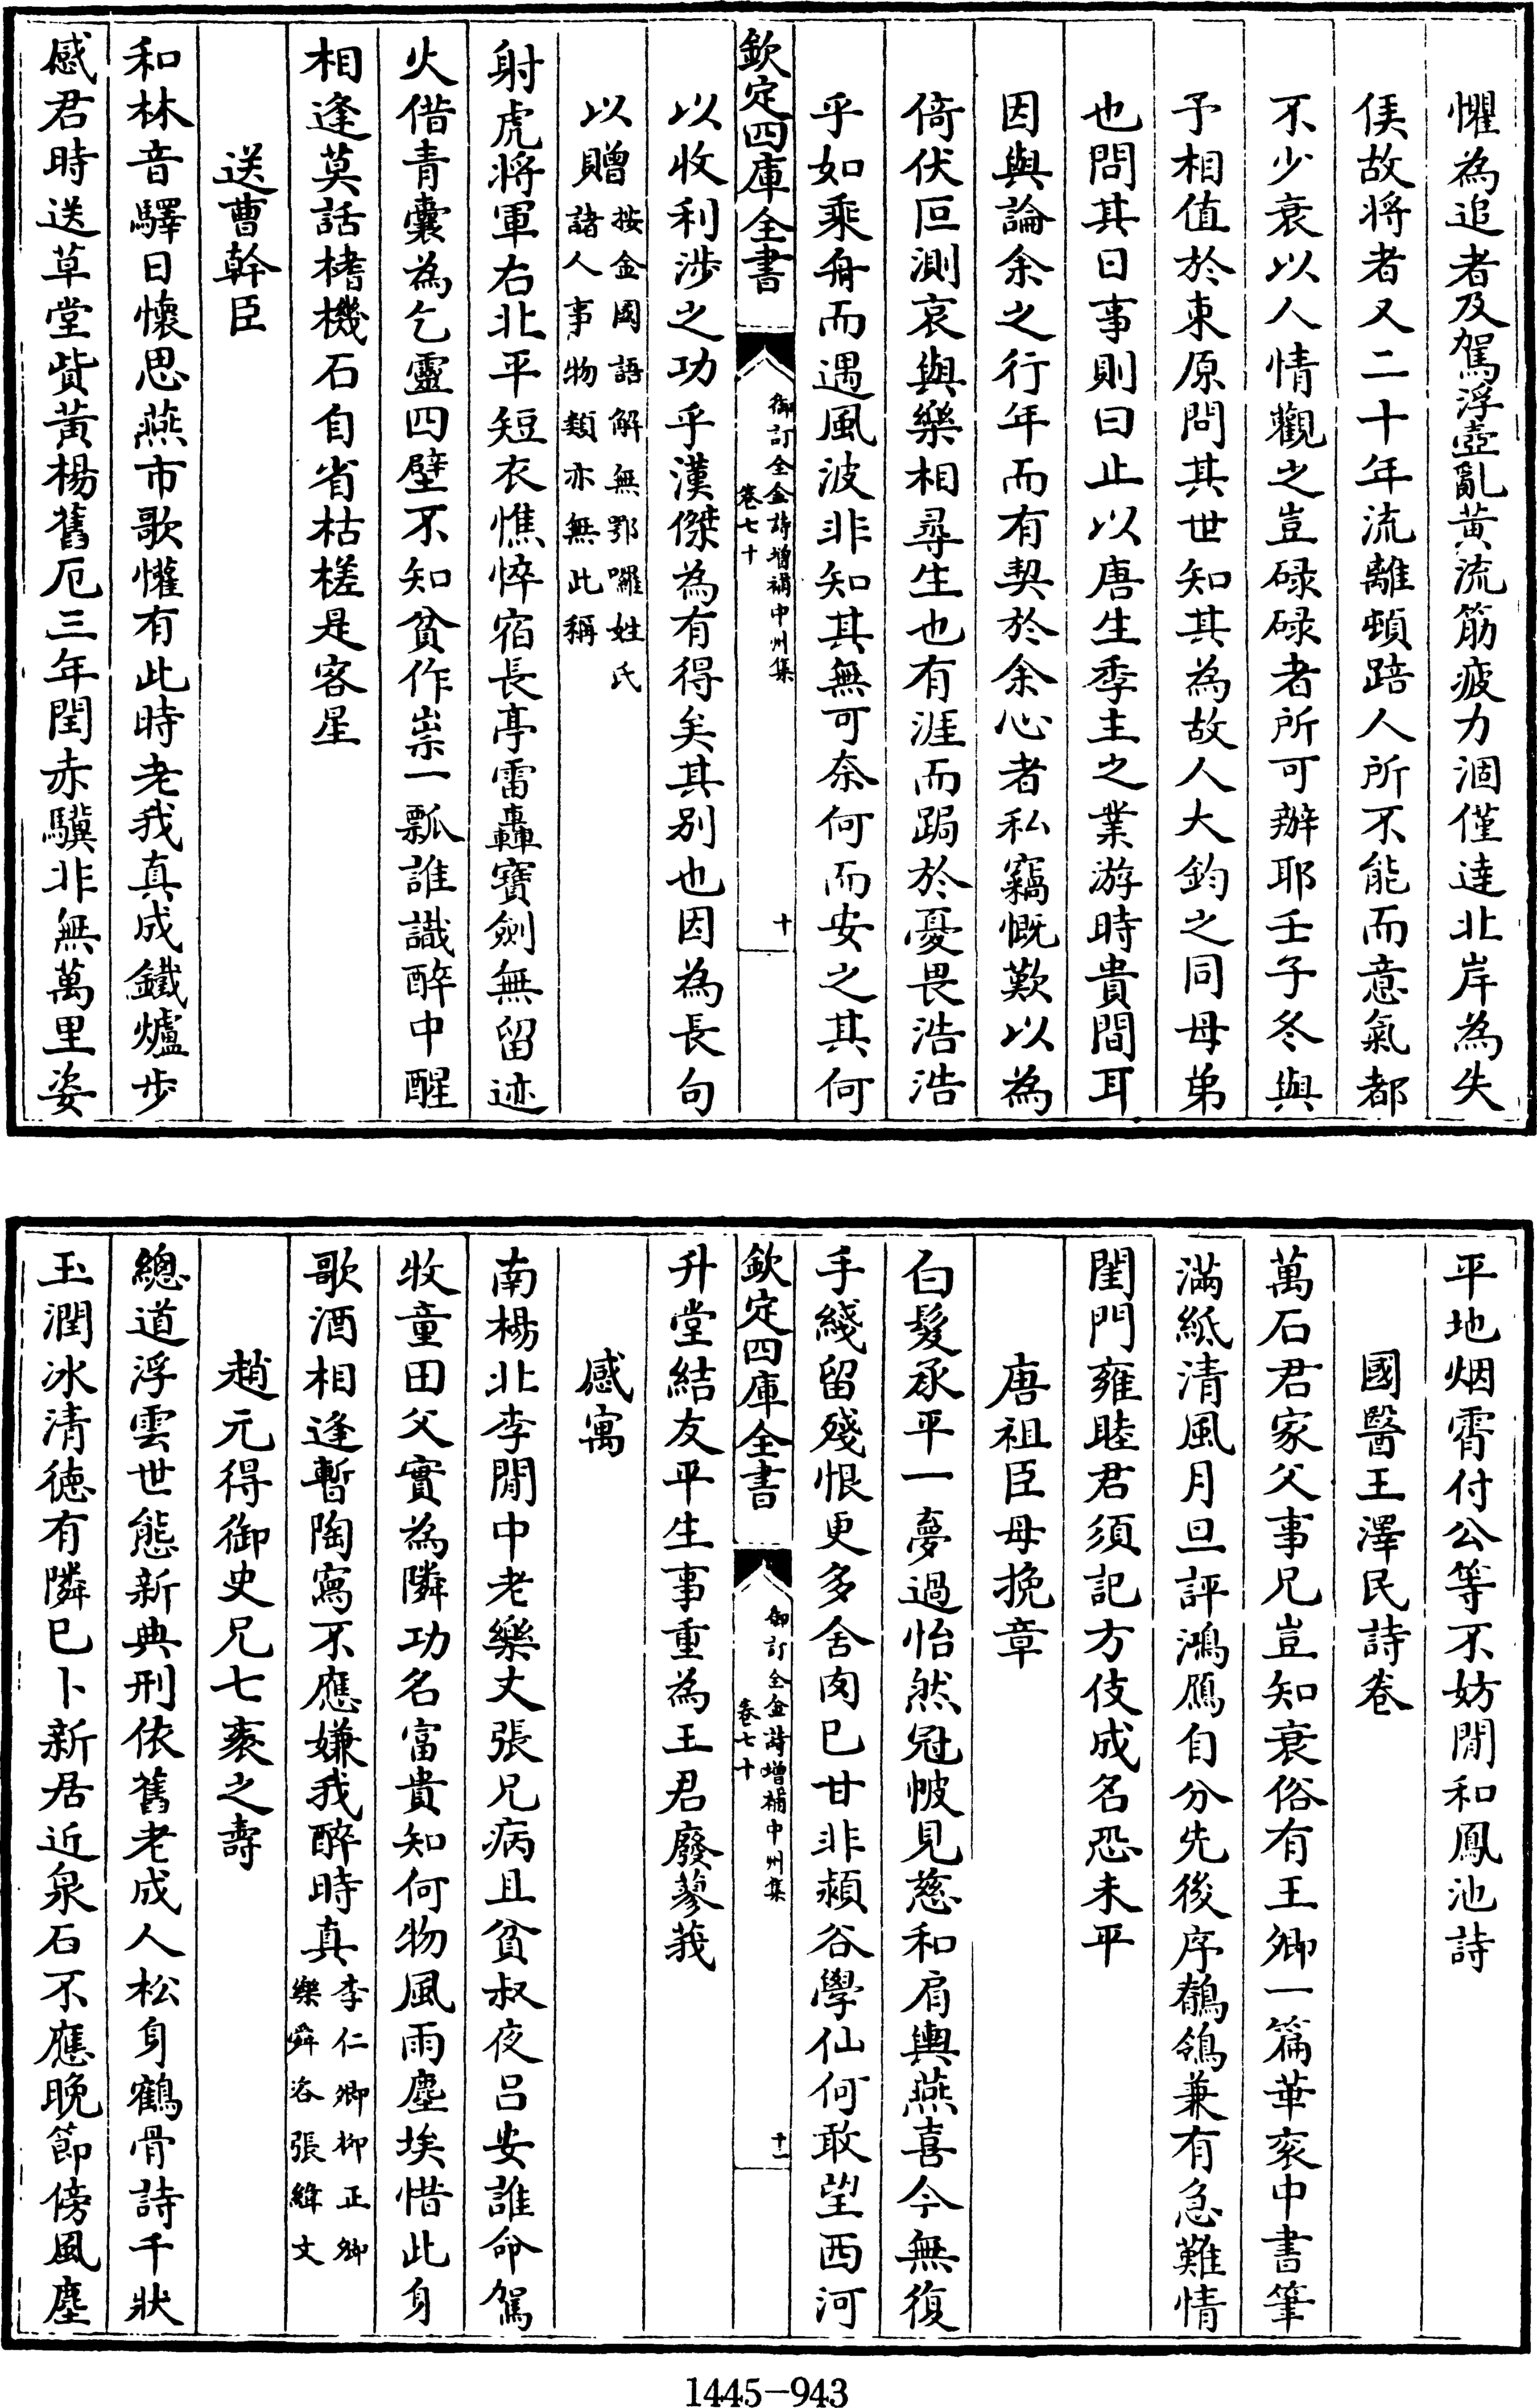 懼為追者及駕浮壺亂黃流筋疲力涸僅達北岸為失
侯故將者又二十年流離頓踣人所不能而意氣都
不少衰以人情觀之豈碌碌者所可辦耶壬子冬與
予相值於東原問其世知其為故人大鈞之同母弟
也問其日事則曰止以唐生季主之業游時貴間耳
因與論余之行年而有契於余心者私竊慨歎以為
倚伏叵測哀與樂相尋生也有涯而跼於憂畏浩浩
乎如乘舟而遇風波非知其無可奈何而安之其何
欽定四庫全書 御訂全金詩增補中州集 卷七十 十
以收利涉之功乎漢傑為有得矣其別也因為長句
以贈按金國語解無鄂囉姓氏諸人事物類亦無此稱
射虎將軍右北平短衣憔悴宿長亭雷轟寶劍無留迹
火借青囊為乞靈四壁不知貧作祟一瓢誰識醉中醒
相逢莫話榰機石自省枯槎是客星
送曹幹臣
和林音驛日懷思燕市歌懽有此時老我真成鐵爐步
感君時送草堂貲黃楊舊厄三年閏赤驥非無萬里姿
平地烟霄付公等不妨閒和鳳池詩
國醫王澤民詩卷
萬石君家父事兄豈知衰俗有王卿一篇華衮中書筆
滿紙清風月旦評鴻鴈自分先後序鶺鴒兼有急難情
閨門雍睦君須記方伎成名恐未平
唐祖臣母挽章
白髮承平一夢過怡然冠帔見慈和肩輿燕喜今無復
手綫留殘恨更多舍肉已甘非潁谷學仙何敢望西河
欽定四庫全書 御訂全金詩增補中州集 卷七十 十一
升堂結友平生事重為王君廢蓼莪
感寓
南楊北李閒中老樂丈張兄病且貧叔夜吕安誰命駕
牧童田父實為隣功名富貴知何物風雨塵埃惜此身
歌酒相逢暫陶寫不應嫌我醉時真李仁卿柳正卿樂舜咨張緯文
趙元得御史兄七袠之壽
總道浮雲世態新典刑依舊老成人松身鶴骨詩千狀
玉潤冰清徳有隣已卜新居近泉石不應晚節傍風塵
1445-943